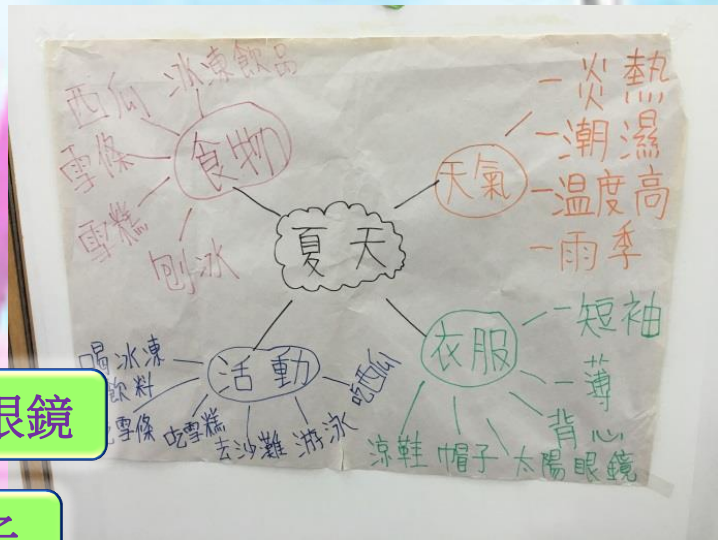 夏天
食物
冰凍飲品
西瓜
雪條
雪糕
刨冰
天氣
-炎熱
-潮濕
-温度高
-雨季
衣服
-短袖
-薄
背心
太陽眼鏡
帽子
涼鞋
活動
喝冰凍
飲料
雪條
吃雪糕
去沙灘
游泳
吃西瓜
眼鏡